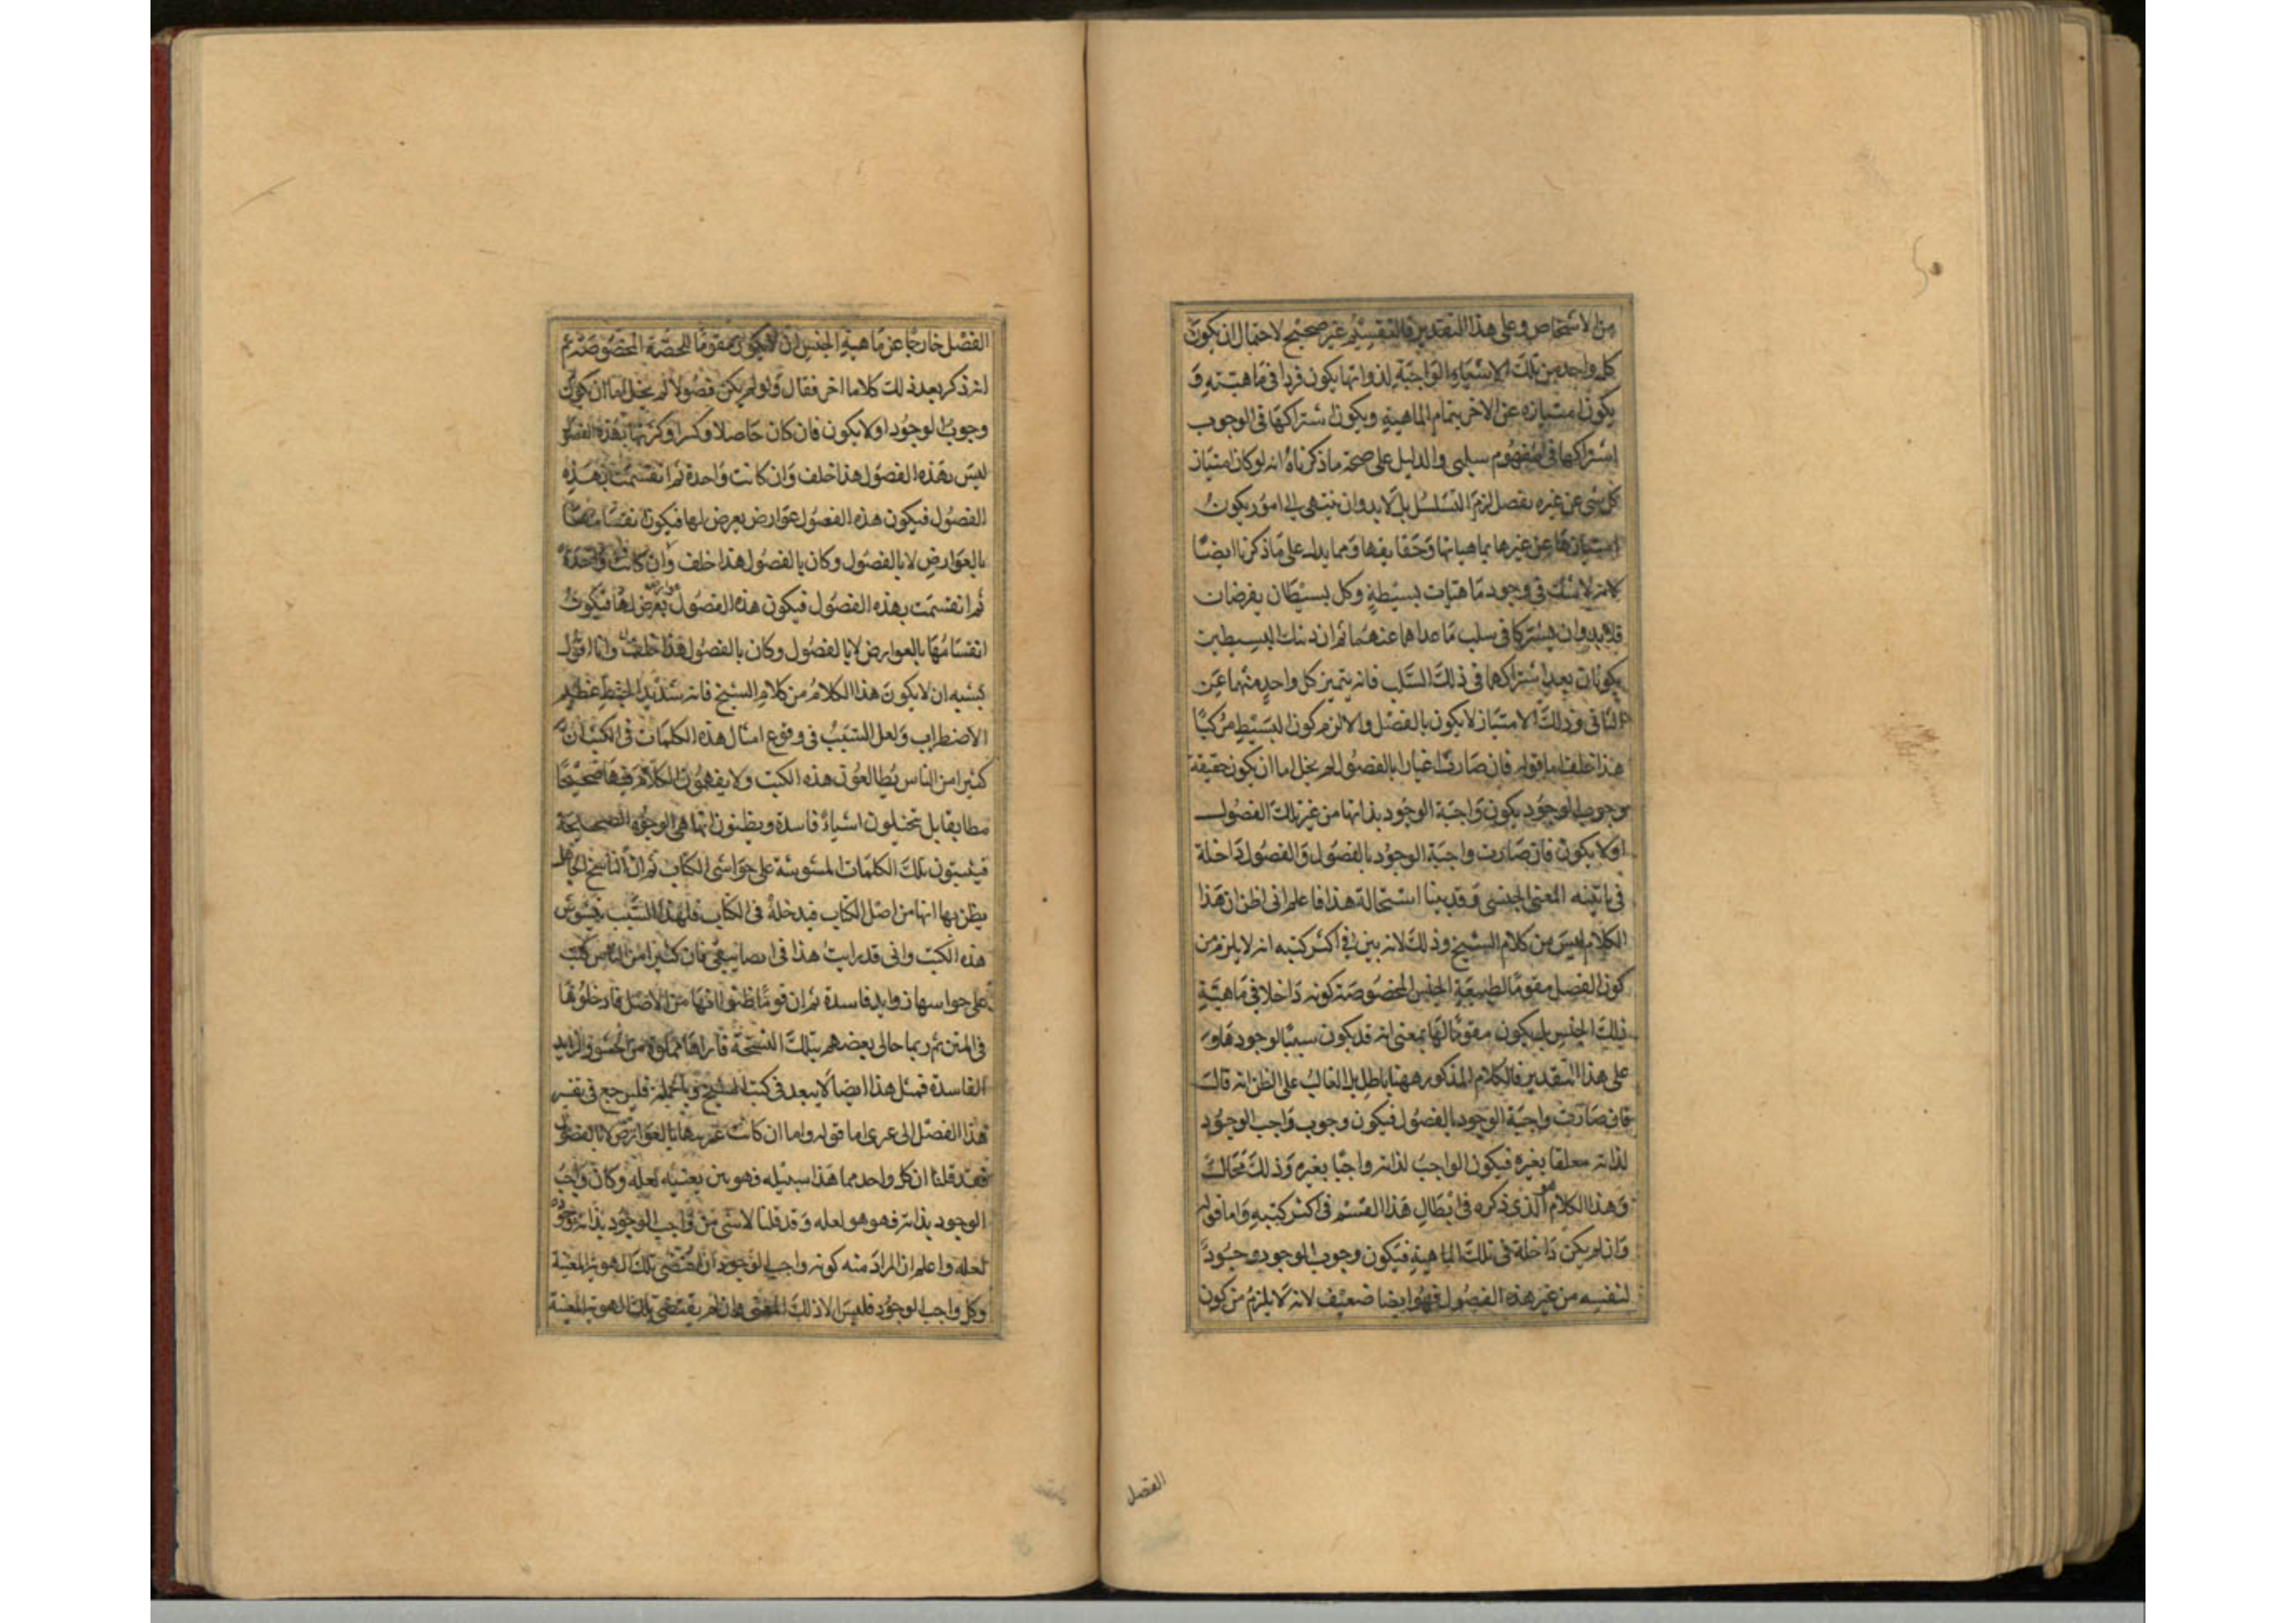 من الاشخاص وعلى هذا التقدير فالتقسيم غير صحيح لاحتمال ان يكون
كل واحد من تلك الاشياء الواجبة لذواتها يكون فردا فى ماهيته و
يكون امتيازه عن الاخر بتمام الماهية ويكون اشتراكها فى الوجوب
اشتراكها فى مفهوم سلبى والدليل على صحة ما ذكرناه انه لو كان امتياز
كل شى عن غيره بفصل لزم التسلسل بل لابد وان ينتهى الى امور يكون
امتيازها عن غيرها بماهياتها وحقايقها ومما يدل على ما ذكرنا ايضا
لانه لا شك فى وجود ماهيات بسيطة وكل بسيطان يفرضان
فلابد وان يشتركا فى سلب ما عداهما عنهما ثم ان ذينك البسيطين
يكونان بعد اشتراكهما فى ذلك السلب فانه يتميز كل واحد منهما عن
الثانى وذلك الامتياز لا يكون بالفصل والا لزم كون البسيط مركبا
هذا خلف اما قوله فان صارت اغيارا بالفصول لم يخل اما ان يكون حقيقة
وجوب الوجود يكون واجبة الوجود بذاتها من غير تلك الفصول
اولا يكون فان صارت واجبة الوجود بالفصول والفصول داخلة
فى المعنى الجنسى وقد بينا استحالة هذا فاعلم انى اظن ان هذا
الكلام ليس من كلام الشيخ وذلك لانه بين فى اكثر كتبه انه لا يلزم من
كون الفصل مقوما لطبيعة الجنس المخصوصة كونه داخلا فى ماهية
ذلك الجنس بل يكون مقوما لها بمعنى انه قد يكون سببا لوجودها و
على هذا التقدير فالكلام المذكور ههنا باطل بل الغالب على الظن انه قال
فان صارت واجبة الوجود بالفصول فيكون وجوب واجب الوجود
لذاته معلقا بغيره فيكون الواجب لذاته واجبا بغيره وذلك محال
وهذا الكلام هو الذى ذكره فى ابطال هذا القسم فى اكثر كتبه واما قوله
وان لم يكن داخلة فى تلك الماهية فيكون وجوب الوجود وجود
لنفسه من غير هذه الفصول فهو ايضا ضعيف لانه لا يلزم من كون
الفصل
الفصل خارجا عن ماهية الجنس ان لا يكون مقوما للحصة المخصوصة ثم
انه ذكر بعد ذلك كلاما اخر فقال ولو لم يكن فصولا لم يخل اما ان يكون
وجوب الوجود اولا يكون فان كان حاصلا وكثرتها بهذه الفصو
ليس بهذه الفصول هذا خلف وان كانت واحدة ثم انقسمت بهذه
الفصول فيكون هذه الفصول عوارض يعرض لها فيكون انقسامها
بالعوارض لا بالفصول وكان بالفصول هذا خلف وان كانت واحدة
ثم انقسمت بهذه الفصول فيكون هذه الفصول عوارض يعرض لها فيكون
انقسامها بالعوارض لا بالفصول وكان بالفصول هذا خلف وانا اقول
يشبه ان لا يكون هذا الكلام من كلام الشيخ فانه شديد الخبط عظيم
الاضطراب ولعل السبب فى وقوع امثال هذه الكلمات فى الكتب ان
كثيرا من الناس يطالعون هذه الكتب ولا يفهمون الكلام فيها صحيحا
مطابقا بل يتخيلون اشياء فاسدة ويظنون انها هى الوجوه الصحيحة
فيثبتون تلك الكلمات المشوشة على حواشى الكتاب ثم ان الناسخ الجاهل
يظن بها انها من اصل الكتاب فيدخله فى الكتاب فلهذا السبب يتشوش
هذه الكتب وانى قد رايت هذا فى تصانيفى فان كثيرا من الناس كتب
على حواشيها زوايد فاسدة ثم ان قوما ظنوا انها من الاصل فادخلوها
فى المتن ثم ربما جانى بعضهم بتلك النسخة فاراها مملوة من الحشو والزايد
الفاسدة فمثل هذا ايضا لا يبعد فى كتب الشيخ وبالجملة فليرجع فى تفسير
هذا الفصل الى غيرى اما قوله واما ان كانت غيريتها بالعوارض لا بالفصول
فقد قلنا ان كل واحد مما هذا سبيله فهو بعينه لعله وكان واجب
الوجود بذاته فهو هو لعله وقد قلنا لا شى من واجب الوجود بذاته وجوده
لعله واعلم ان المراد منه كونه واجب الوجود ان اقتضى تلك الهوية المعينة
وكل واجب الوجود فليس الا ذلك المعنى وان لم يقتضى تلك الهوية المعينة